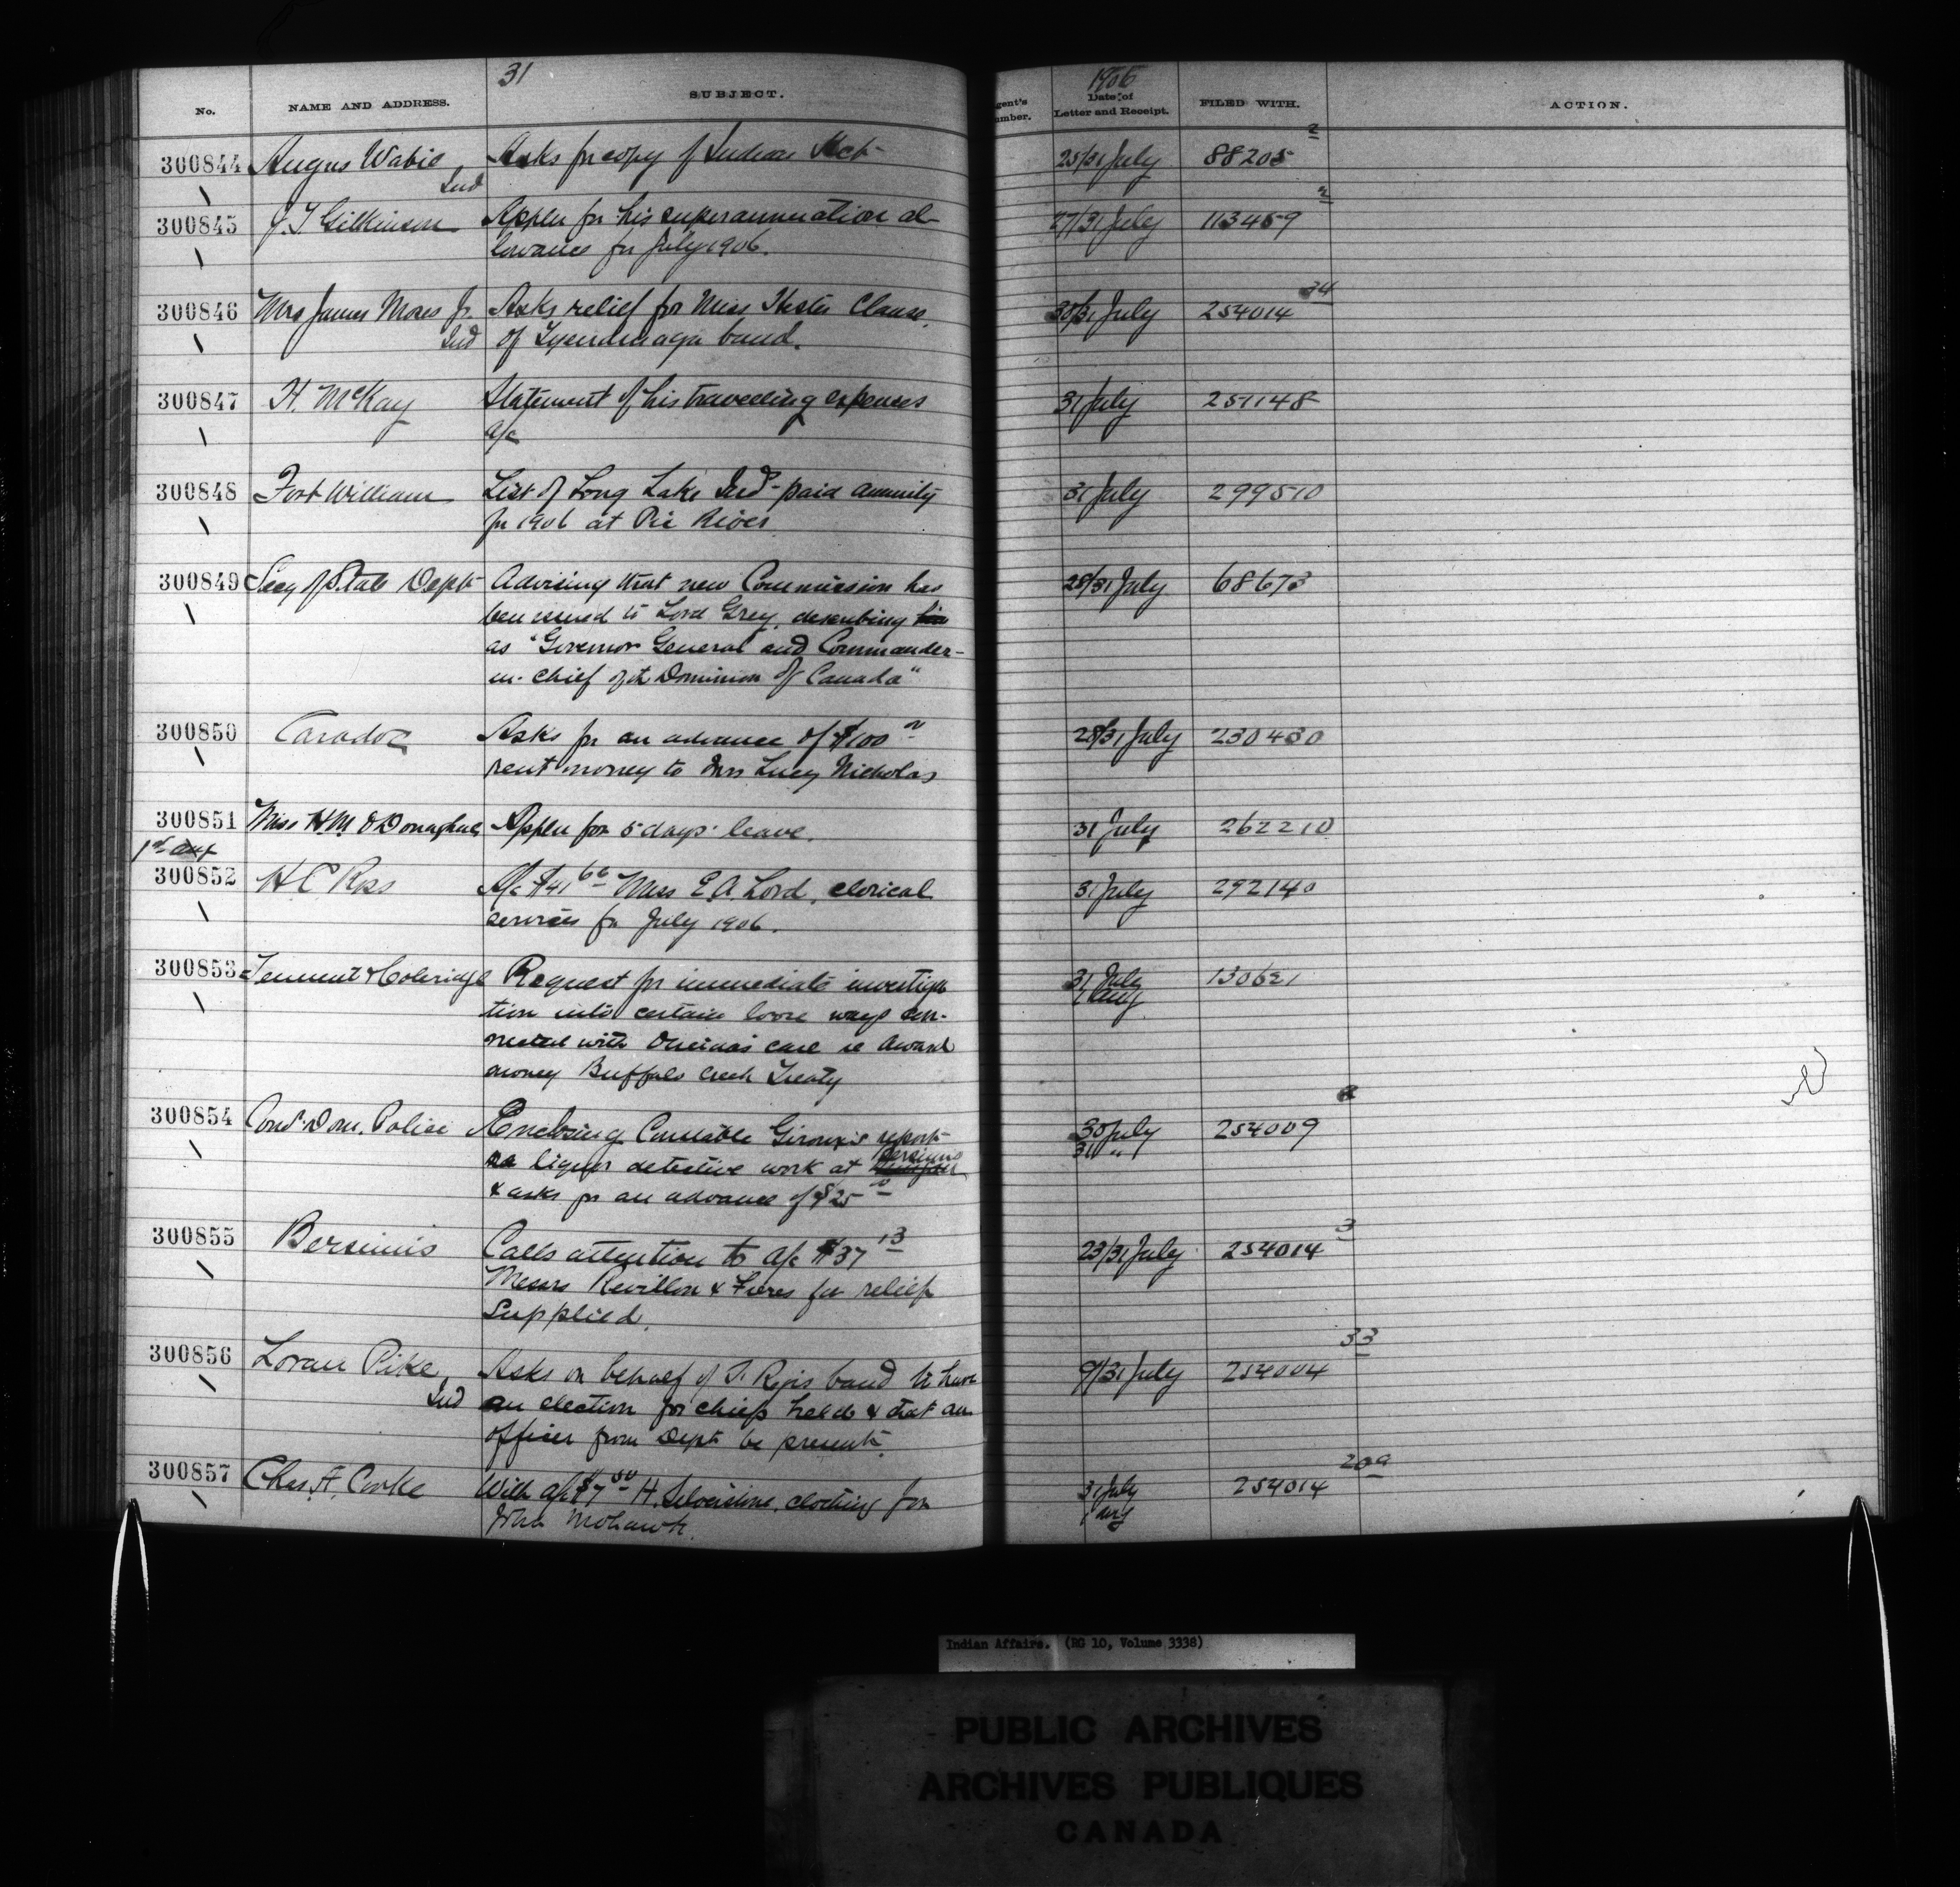 31
1906
No.
NAME AND ADDRESS.
SUBJECT.
gent's
umber.
Date of
Letter and Receipt.
FILED WITH.
ACTION.
300844 Angus Wabie Asks for copy of Indian Act 25/31 July 88205 2
Ind
300845 J.T. Gilkinson Applen for his superannuation al- 27/31 July 113459 2
lowance for July 1906.
300846 Mrs James Moses Jr. Asks relief for Miss Hester Claus, 30/31 July 254014 34
Ind of Tyendinaga band.
300847 H. McKay Statement of his travelling expenses 31 July 251148
a/c
300848 Fort William List of Long Lake Inds paid annuity 31 July 299510
for 1906 at Pic River
300849 Secy of State Dept Advising that new Commission has 28/31 July 68673
been issued to Lord Grey, describing him
as "Governor General and Commander-
in-chief of the Dominion of Canada"
300850 Caradoc Asks for an advance of $100 28/31 July 230430
rent money to Mrs Lucy Nicholas
300851 Miss H M O'Donaghue Applen for 5 days' leave. 31 July 262210
1st Aug
300852 H C Ross A/c $41 66 Miss E.A. Lord, clerical 31 July 292140
services for July 1906.
300853 Tennent & Coleridge Request for immediate investiga 31 July 130621
1 Aug
tion into certain loose ways con-
nected with Oneidas case re award
money Buffalo Creek Treaty
300854 Comr. Dom. Police Enclosing Constable Giroux's report 30 July 254009
31 "
re liquor detective work at Bersimis
& asks for an advance of $25
300855 Bersimis Calls attention to a/c $37 13 23/31 July 254014 3
Messrs Revillon & Freres for relief
supplied.
300856 Loran Pike Asks on behalf of St. Regis band to have 9/31 July 254004 33
Ind an election for chiefs held & that an
officer from Dept be present.
300857 Chas. A. Cooke With a/c $7 50 H. Silverstone, clothing for 31 July 254014 20a
1 Aug
John Mohawk.
Indian Affairs. (RG 10, Volume 3338)
PUBLIC ARCHIVES
ARCHIVES PUBLIQUES
CANADA